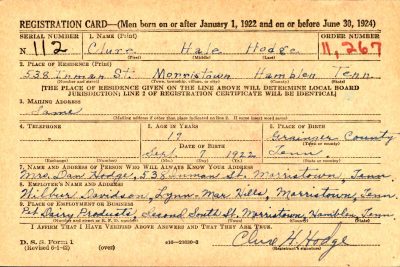 REGISTRATION CARD—(Men born on or after January 1, 1922 and on or before June 30, 1924)
SERIAL NUMBER 1. NAME (Print) ORDER NUMBER
N 112 Clure Hale Hodge 11,267
(First) (Middle) (Last)
2. PLACE OF RESIDENCE (Print)
538 Inman St. Morristown Hamblen Tenn
(Number and street) (Town, township, village, or city) (County) (State)
[THE PLACE OF RESIDENCE GIVEN ON THE LINE ABOVE WILL DETERMINE LOCAL BOARD
JURISDICTION; LINE 2 OF REGISTRATION CERTIFICATE WILL BE IDENTICAL]
3. MAILING ADDRESS
Same
(Mailing address if other than place indicated on line 2. If same, insert word same)
4. TELEPHONE 5. AGE IN YEARS 6. PLACE OF BIRTH
19 Grainger County
DATE OF BIRTH (Town or county)
Sept 7 1922 Tenn
(Exchange) (Number) (Mo.) (Day) (Yr.) (State or country)
7. NAME AND ADDRESS OF PERSON WHO WILL ALWAYS KNOW YOUR ADDRESS
Mrs. Dan Hodge, 538 Inman St. Morristown, Tenn
8. EMPLOYER'S NAME AND ADDRESS
Wilbur Davidson, Lynn Mar Hills, Morristown, Tenn.
9. PLACE OF EMPLOYMENT OR BUSINESS
Pet Dairy Products, Second South St. Morristown, Hamblen, Tenn.
(Number and street or R. F. D. number) (Town) (County) (State)
I AFFIRM THAT I HAVE VERIFIED ABOVE ANSWERS AND THAT THEY ARE TRUE.
D. S. S. Form 1
(Revised 6-9-42) (over) Clure H. Hodge
(Registrant's signature)